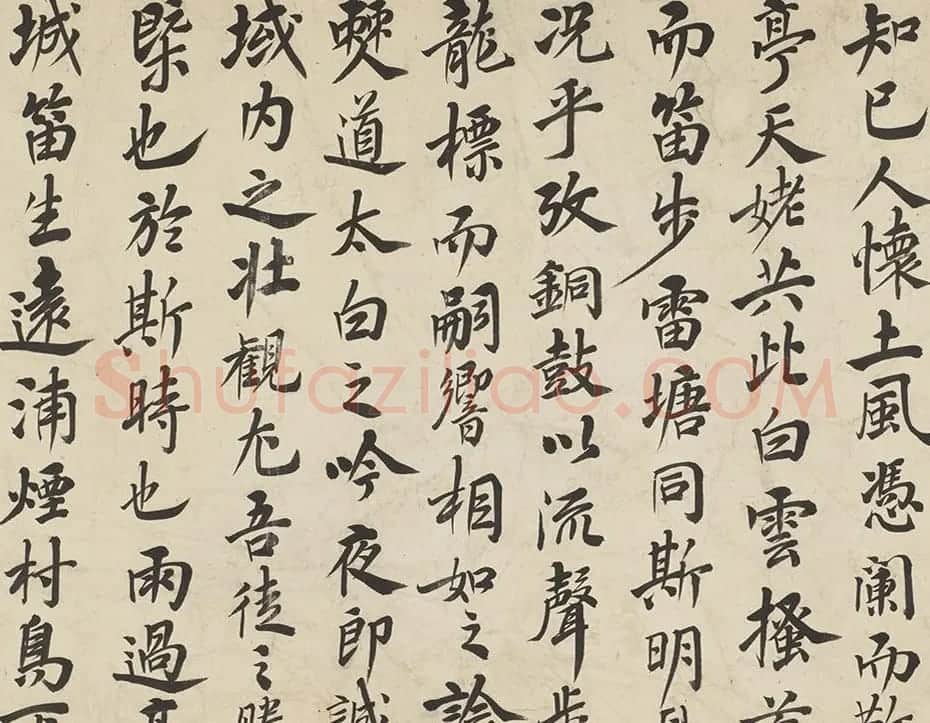 知已人懷土風憑闌而
亭天姥共此白雲搔首
而笛步雷塘同斯明月
况乎攷銅鼓以流聲步
龍標而嗣響相如之諭
僰道太白之吟夜郎誠
域内之壮觀尤吾徒之勝
槩也於斯時也雨過高
城笛生遠浦煙村鳥下
Shufaziliao.COM